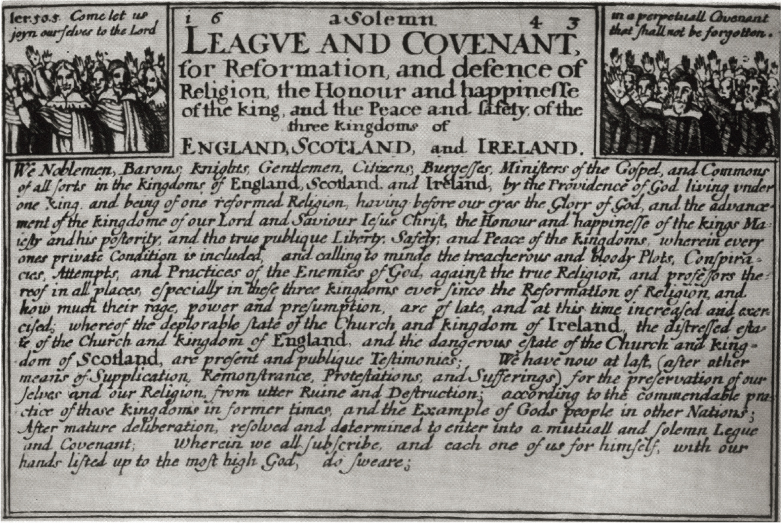 Ier. 50. 5. Come let us
joyn ourselves to the Lord
1 6 a Solemn 4 3
LEAGVE AND COVENANT,
for Reformation, and defence of
Religion, the Honour and happinesse
of the king, and the Peace and safety of the
three kingdoms of
ENGLAND, SCOTLAND, and IRELAND.
in a perpetuall Covenant
that shall not be forgotten.
We Noblemen, Barons, knights, Gentlemen, Citizens, Burgesses, Ministers of the Gospel, and Commons
of all sorts in the kingdoms of England, Scotland, and Ireland, by the Providence of God living vnder
one king, and being of one reformed Religion, having before our eyes the Glory of God, and the advance-
ment of the kingdome of our Lord and Saviour Iesus Christ, the Honour and happinesse of the kings Ma-
iesty and his posterity, and the true publique Liberty, Safety, and Peace of the Kingdoms, wherein every
ones private Condition is included, and calling to minde the treacherous and bloody Plots, Conspira-
cies, Attempts, and Practices of the Enemies of God, against the true Religion, and professors the-
reof in all places, especially in these three kingdoms ever since the Reformation of Religion, and
how much their rage, power and presumption, are of late, and at this time increased and exer-
cised; whereof the deplorable state of the Church and kingdom of Ireland, the distressed esta-
te of the Church and kingdom of England, and the dangerous estate of the Church and king-
dom of Scotland, are present and publique Testimonies; We have now at last, (after other
means of Supplication, Remonstrance, Protestations, and Sufferings) for the preservation of our
selves and our Religion, from utter Ruine and Destruction; according to the commendable pra-
ctice of these Kingdoms in former times, and the Example of Gods people in other Nations;
After mature deliberation, resolved and determined to enter into a mutuall and solemn Legue
and Covenant; Wherein we all subscribe, and each one of us for himself, with our
hands lifted up to the most high God, do sweare;